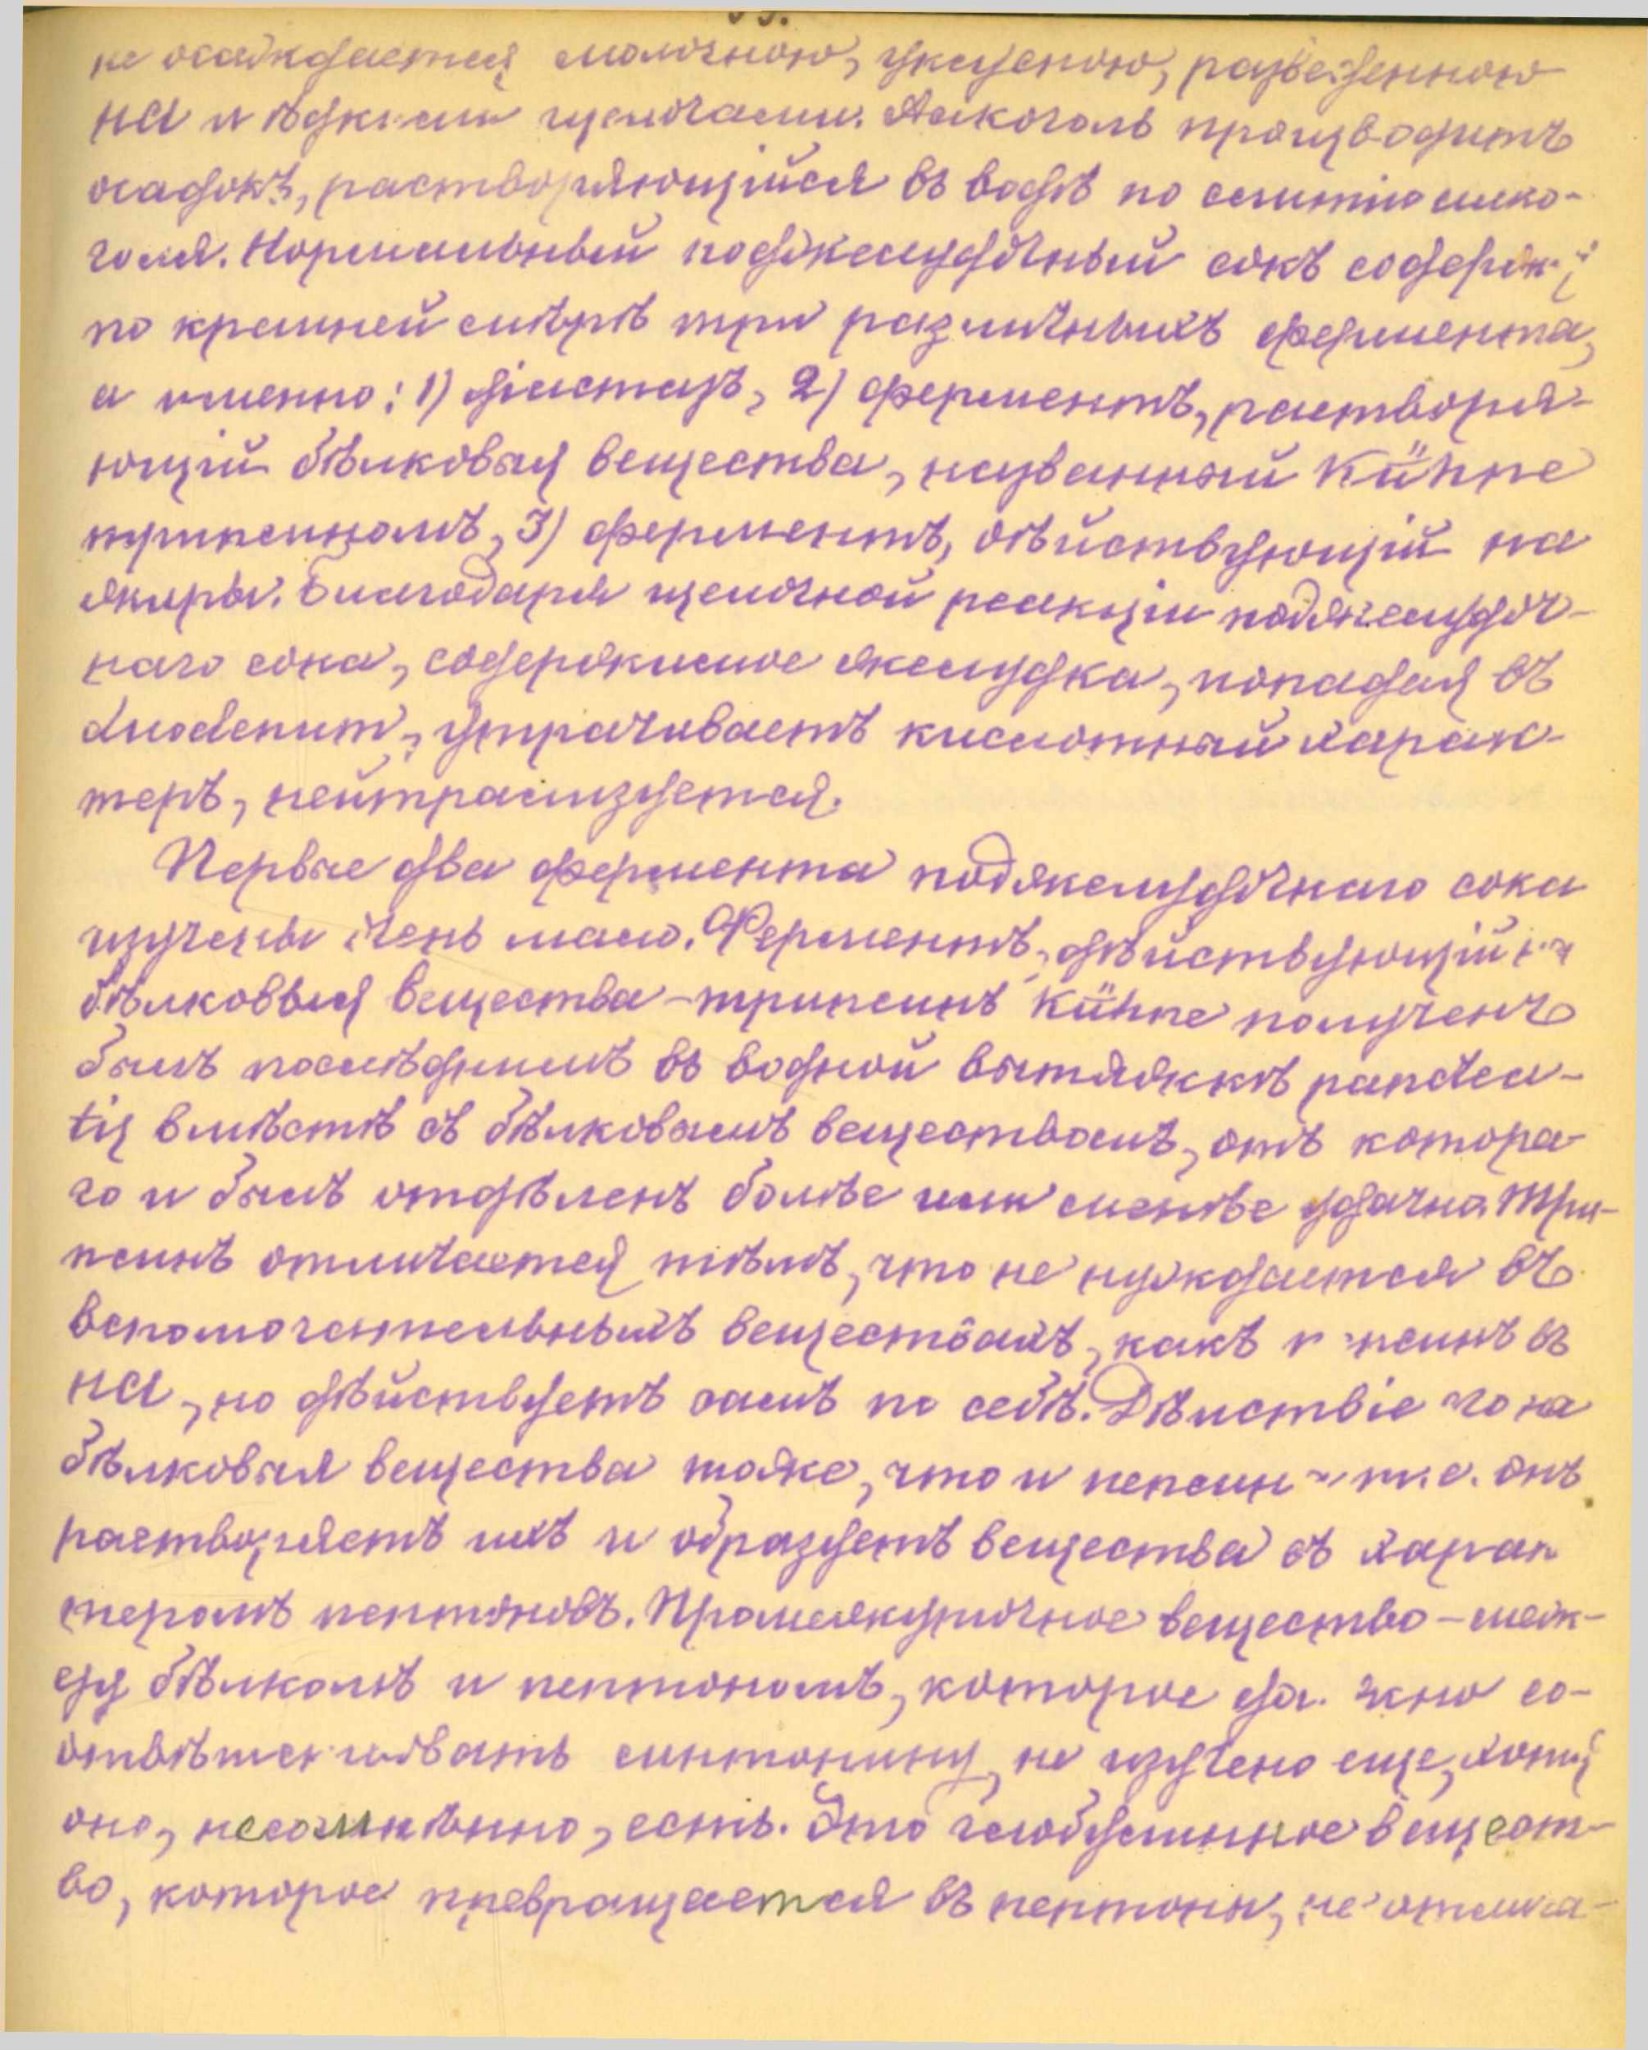 не осаждается молочною, уксусною, разведенною
HCl и ѣдкими щелочами. Алкоголь производитъ
осадокъ, растворяющійся въ водѣ по слитіи алко-
голя. Нормальный поджелудочный сокъ содерж
по крайней мѣрѣ три различныхъ фермента,
а именно: 1) діастазъ, 2) ферментъ, растворя-
ющій бѣлковыя вещества, названный Kühne
трипсиномъ, 3) ферментъ, дѣйствующій на
жиры. Благодаря щелочной реакціи поджелудоч-
наго сока, содержимое желудка, попадая въ
duodenum, утрачиваетъ кислотный харак-
теръ, нейтрализуется.
Первые два фермента поджелудочнаго сока
изучены очень мало. Ферментъ, дѣйствующій на
бѣлковыя вещества - трипсинъ Kühne полученъ
былъ послѣднимъ въ водной вытяжкѣ pancrea-
tis вмѣстѣ съ бѣлковымъ веществомъ, отъ котора-
го и былъ отдѣленъ болѣе или менѣе удачно. Три-
псинъ отличается тѣмъ, что не нуждается въ
вспомогательныхъ веществахъ, какъ пепсинъ въ
HCl, но дѣйствуетъ самъ по себѣ. Дѣйствіе его на
бѣлковыя вещества тоже, что и пепсина т. е. онъ
растворяетъ ихъ и образуетъ вещества съ харак
теромъ пептоновъ. Промежуточное вещество - меж-
ду бѣлкомъ и пептономъ, которое должно со-
отвѣтствовать синтонину, не изучено еще, хотя
оно, несомнѣнно, есть. Это глобулинное вещест-
во, которое превращается въ пептоны, не отлича-